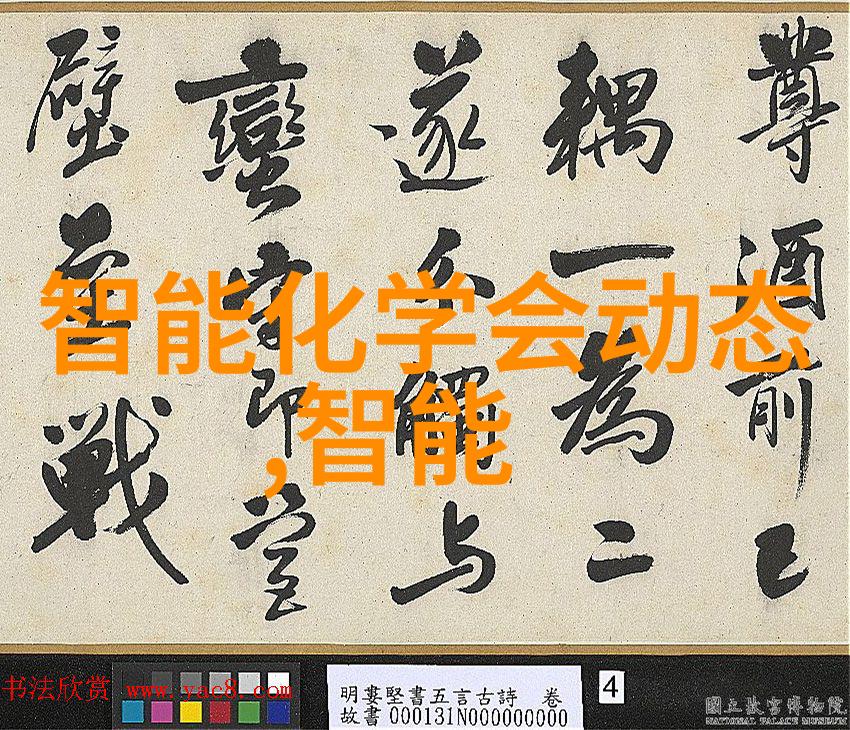 尊酒前已
耦一為二
遂 觸与
蠻 即營
壁 戰
智能化学会动态
,智能
书法欣赏 www.yac8.com
明婁堅書五言古詩 卷
故書000131N000000000
4
國立故宮博物院
NATIONAL PALACE MUSEUM